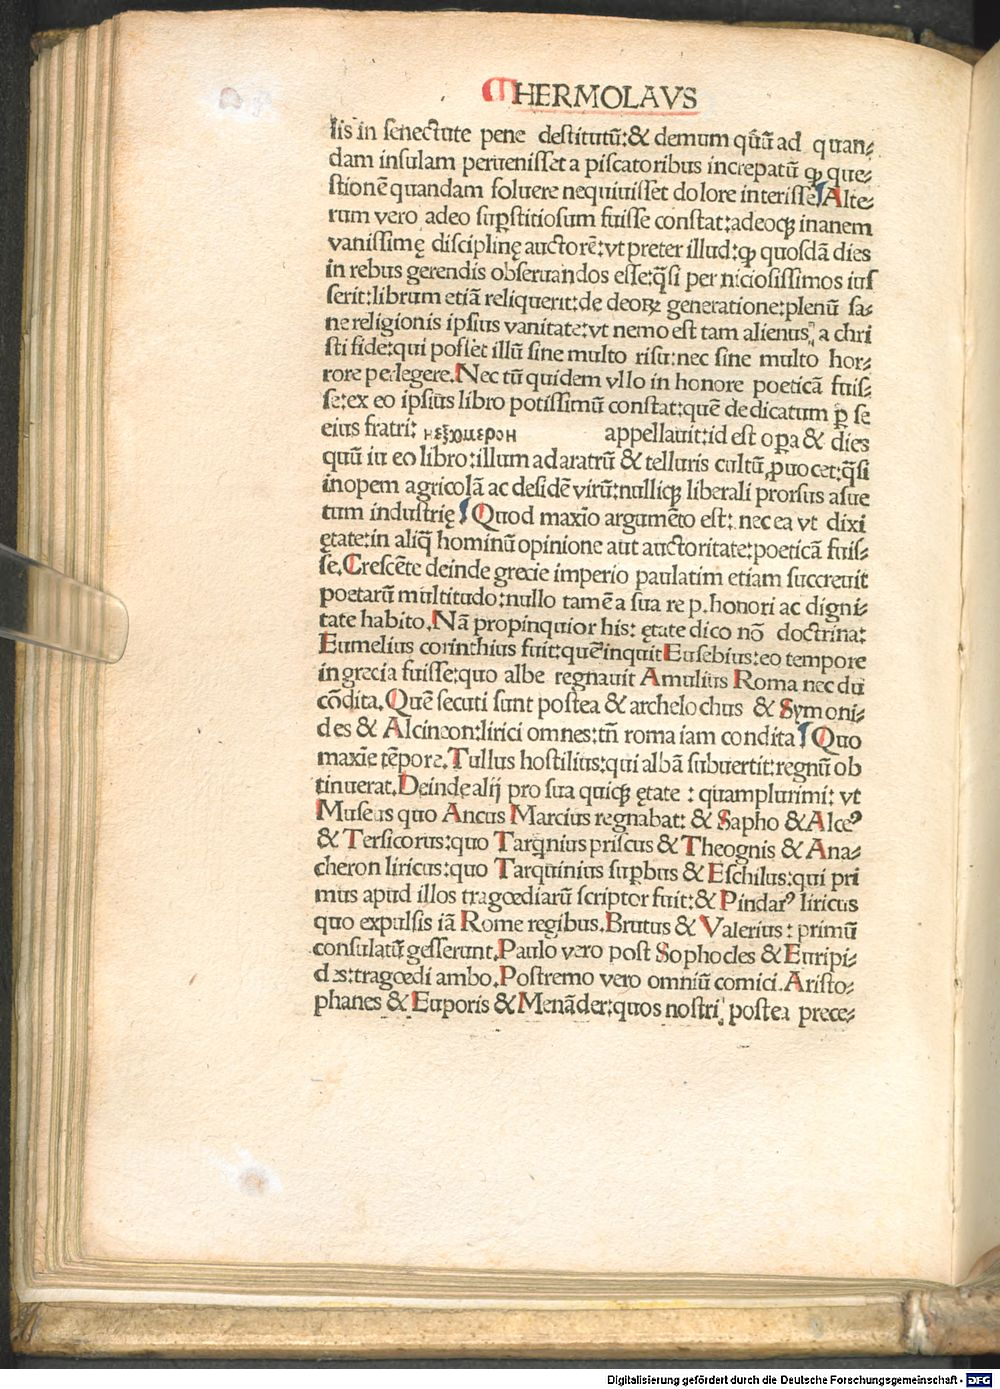 HERMOLAVS
lis in senectute pene destitutū:& demum qūā ad quan⸗
dam insulam peruenisset a piscatoribus increpatū ꝙ que⸗
stionē quandam soluere nequiuisset dolore interisse Alte⸗
rum vero adeo suꝑstitiosum fuisse constat:adeoqꝫ inanem
vanissimę disciplinę auctorē:vt preter illud:ꝙ quosdā dies
in rebus gerendis obseruandos esse:q̄si perniciosissimos ius
serit:librum etiā reliquerit:de deoꝝ generatione:plenū sa⸗
ne religionis ipsius vanitate:vt nemo est tam alienus a chri
sti fide:qui possēt illū sine multo risu:nec sine multo hor⸗
rore perlegere.Nec tū quidem vllo in honore poeticā fuis⸗
se:ex eo ipsius libro potissimū constat:quē dedicatum ꝑ se
eius fratri: appellauit:id est oꝑa & dies
quū in eo libro:illum ad aratrū & telluris cultū ꝓuocet:q̄si
inopem agricolā ac desidē virū:nulliqꝫ liberali prorsus asue
tum industrię Quod maxīo argumēto est: nec ea vt dixi
ętate:in aliq̄ hominū opinione aut auctoritate:poeticā fuis⸗
se.Crescēte deinde grecie imperio paulatim etiam succreuit
poetarū multitudo:nullo tamē a sua re p.honori ac digni⸗
tate habito.Nā propinquior his: ętate dico nō doctrina:
Eumelius corinthius fuit:quē inquit Eusebius:eo tempore
in grecia fuisse:quo albe regnauit Amulius Roma nec dū
cōdita.Quē secuti sunt postea & archelochus & Symoni⸗
des & Alcineon:lirici omnes:tn̄ roma iam condita Quo
maxīe tēpore.Tullus hostilius:qui albā subuertit:regnū ob
tinuerat.Deinde alij pro sua quiqꝫ ętate : quamplurimi: vt
Museus quo Ancus Marcius regnabat: & Sapho & Alceꝰ
& Tersicorus:quo Tarq̄nius priscus & Theognis & Ana⸗
cheron liricus:quo Tarquinius suꝑbus & Eschilus:qui pri
mus apud illos tragœdiarū scriptor fuit:& Pindarꝰ liricus
quo expulsis iā Rome regibus.Brutus & Valerius : primū
consulatū gesserunt.Paulo vero post Sophocles & Euripi⸗
des:tragœdi ambo.Postremo vero omniū comici.Aristo⸗
phanes & Euporis & Menāder:quos nostri postea prece⸗
Digitalisierung gefördert durch die Deutsche Forschungsgemeinschaft - DFG